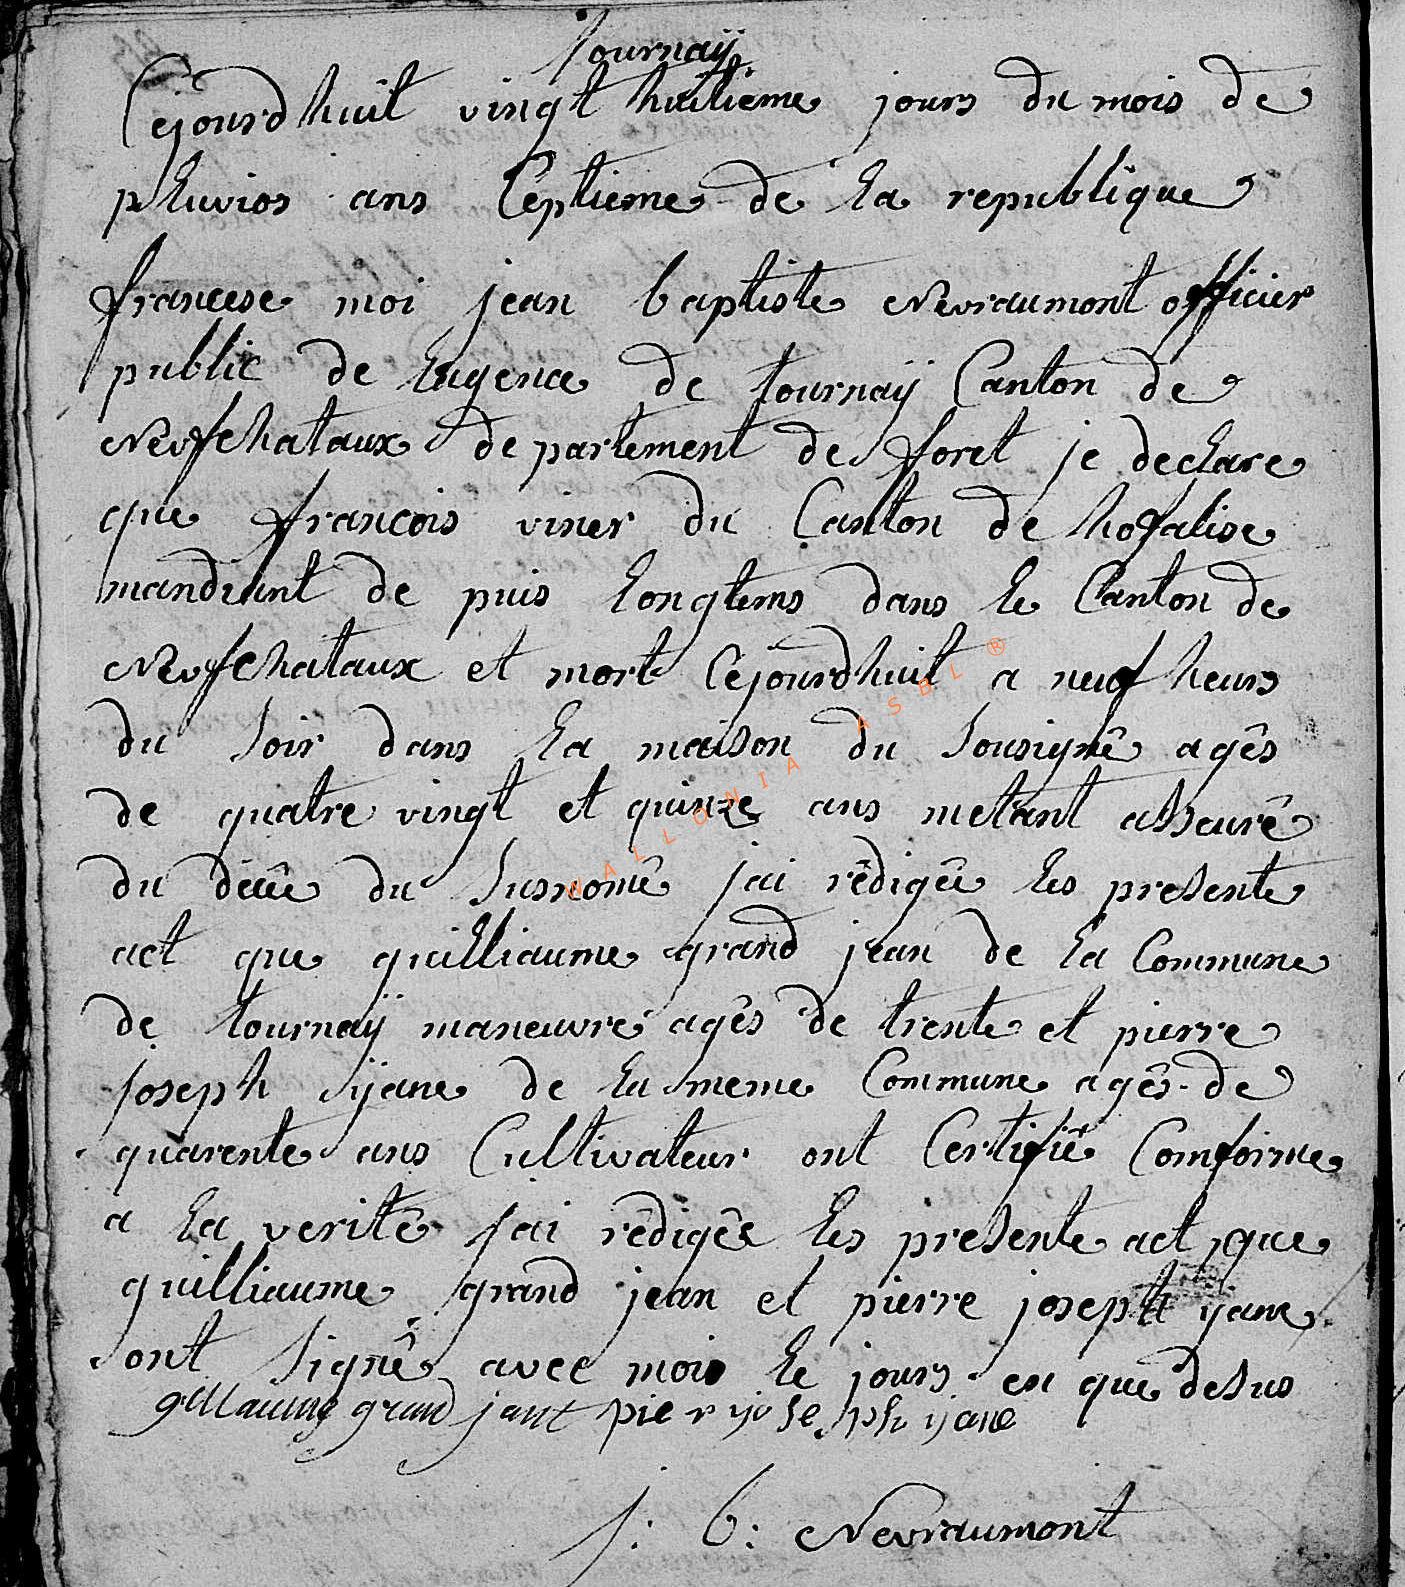 Tournaÿ
Cejourdhuit vingt huitieme jours du mois de
pluvios ans Ceptieme de la republique
francese moi jean baptiste Nevraumont officier
public de lagence de tournaÿ Canton de
Nevfchataux departement de foret je declare
que francois viner du Canton de hofalise
mandiant de puis longtems dans le Canton de
Nevfchataux et mort Cejourdhuit a neuf heurs
du soir dans la maison du sousignê agês
de quatre vingt et quinze ans metant asseurê
du décêe du susnomê jai rêdigêe les presente
act que guilliaume grand jean de la Commune
de tournaÿ maneuvre agês de trente et pierre
joseph ÿane de la meme Commune agês de
quarente ans Cultivateur ont Certifiê Comforme
a la veritê jai rêdigêe les presente act, que
guilliaume grand jean et pierre joseph yane
ont signê avec mois le jours en que desus
gullaume grand jant pier yosesph ÿane
j: b: Nevraumont
WALLONIA ASBL ®